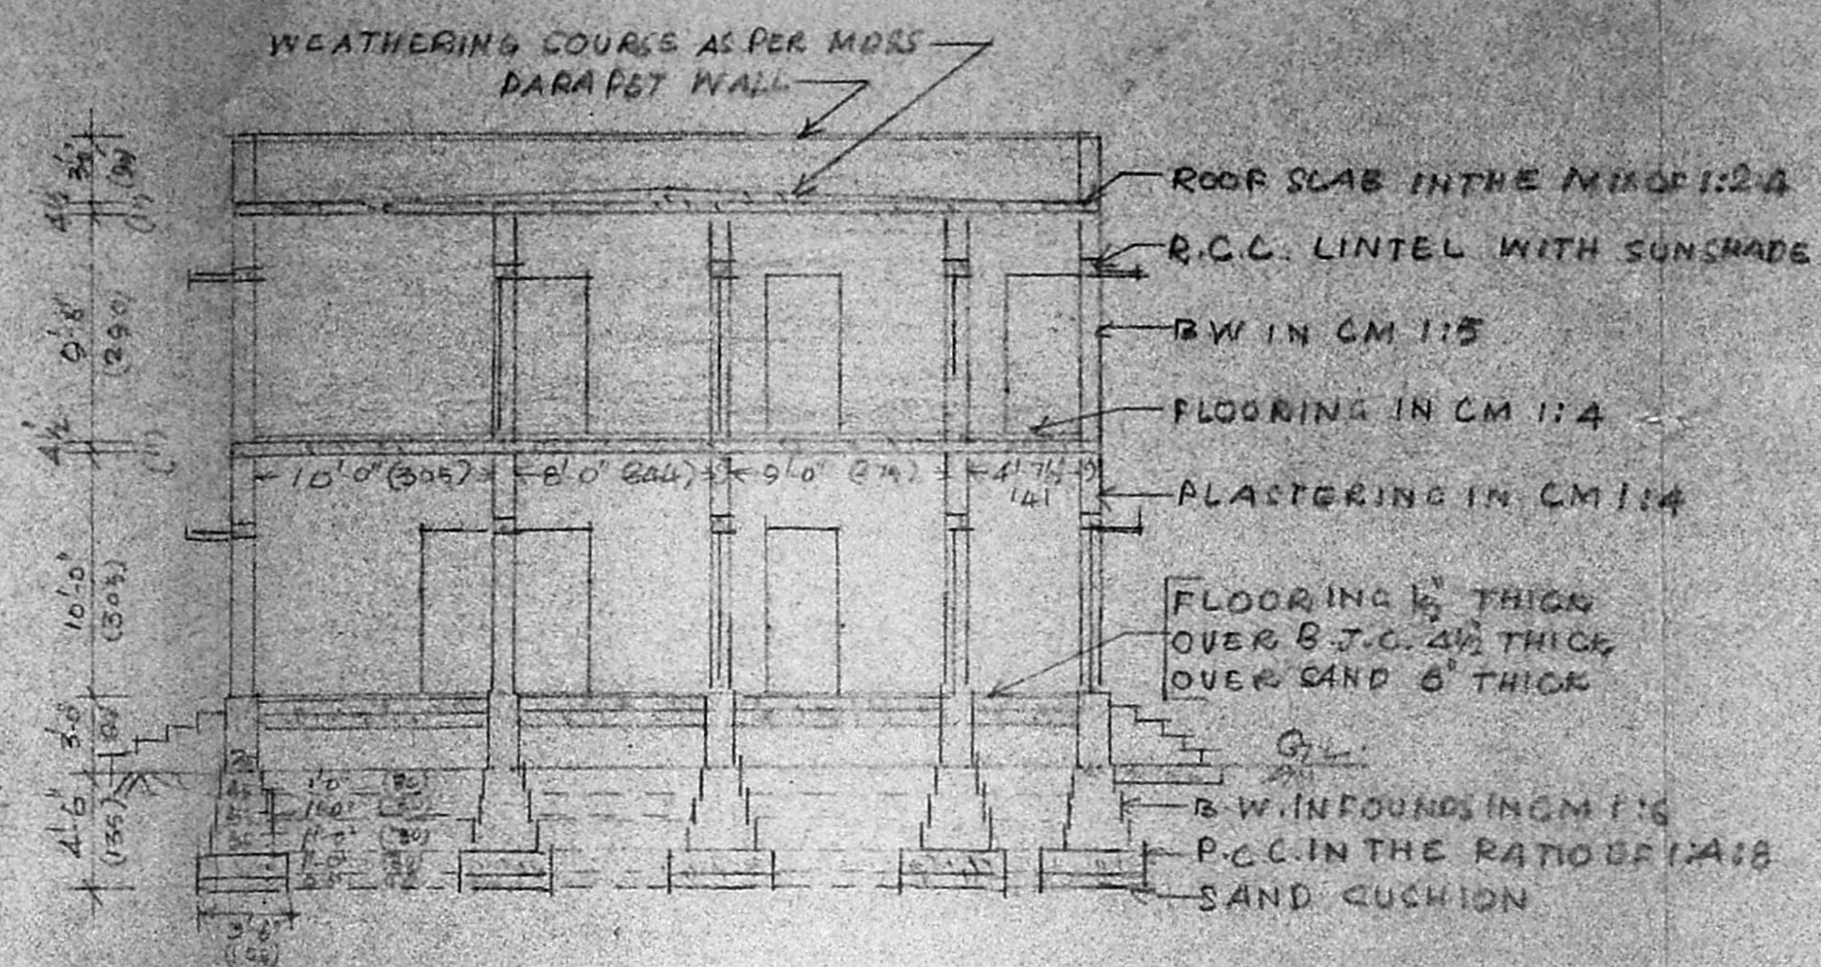 WEATHERING COURSE AS PER MDSS
PARAPET WALL
ROOF SLAB IN THE MIX OF 1:2:4
R.C.C. LINTEL WITH SUNSHADE
BW IN CM 1:5
FLOORING IN CM 1:4
PLASTERING IN CM 1:4
FLOORING 1½" THICK
OVER B.J.C. 4½" THICK
OVER SAND 6" THICK
G.L.
B.W. IN FOUNDS IN CM 1:6
P.C.C. IN THE RATIO OF 1:4:8
SAND CUSHION
4½"
9'-8"
(290)
4½"
10'-0"
(305)
3'-0"
4'-6"
(135)
10'-0" (305)
8'-0" 244)
9'-0"
4'-7½"
141
1'-0"
3'-6"